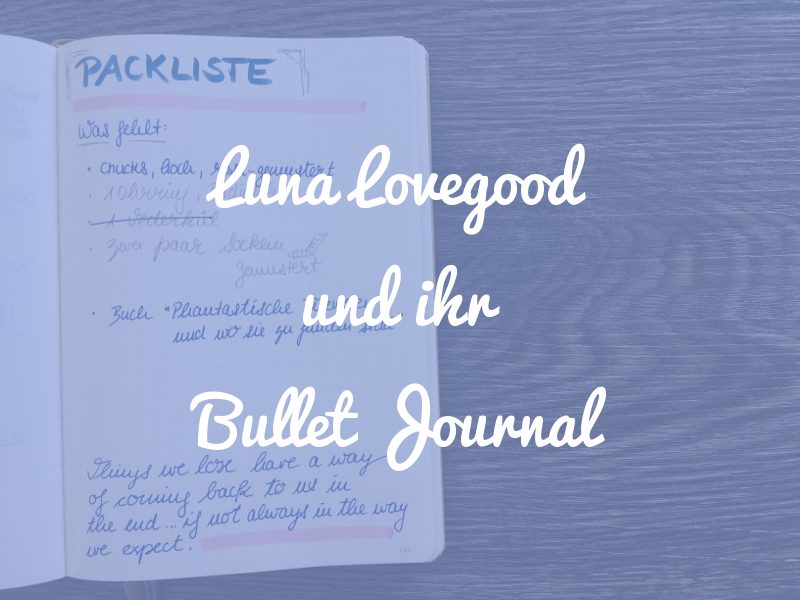 PACKLISTE
Was fehlt:
• Chucks, hoch,
• 1 Ohrring,
1 Federkiel
• zwei paar Socken
gemustert
• Buch "Phantastische
und wo sie zu finden sind
Things we lose have a way
of coming back to us in
the end... if not always in the way
we expect.
147
Luna Lovegood
und ihr
Bullet Journal